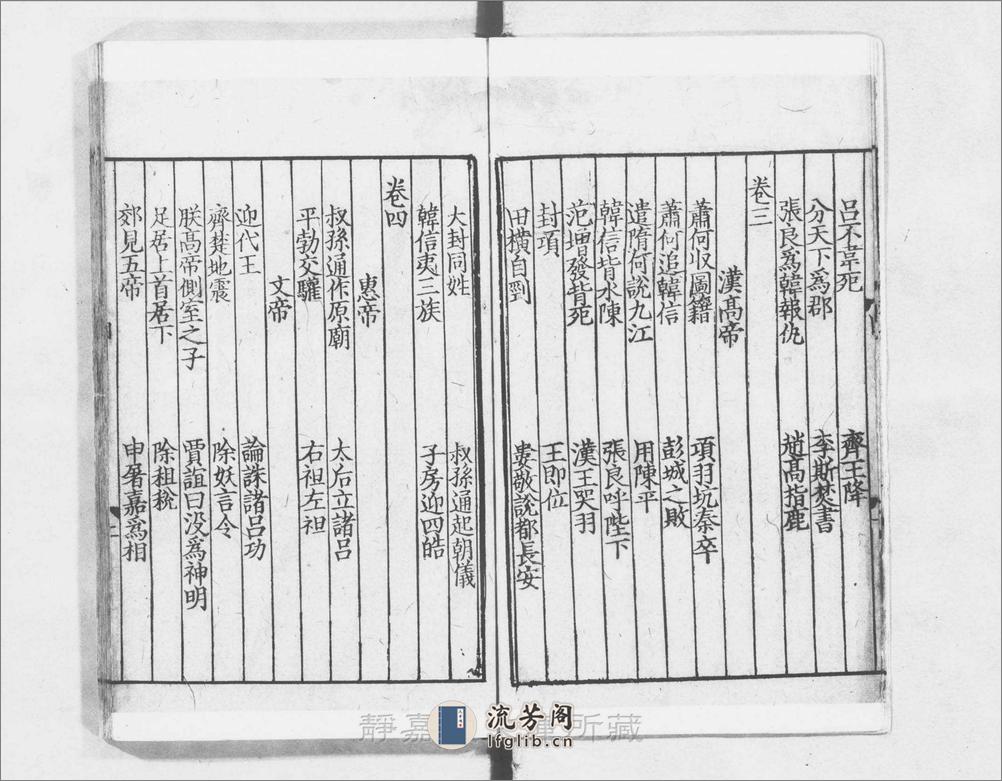 呂不韋死　齊王降
分天下爲郡　李斯焚書
張良爲韓報仇　趙髙指鹿
卷三
漢髙帝
蕭何收圖籍　項羽坑秦卒
蕭何追韓信　彭城之敗
遣隋何說九江　用陳平
韓信背水陳　張良呼陛下
范增發背死　漢王哭羽
封項　王即位
田横自剄　婁敬說都長安
大封同姓　叔孫通起朝儀
韓信夷三族　子房迎四皓
卷四
惠帝
叔孫通作原廟　太后立諸呂
平勃交驩　右袒左袒
文帝
迎代王　論誅諸呂功
齊楚地震　除妖言令
朕髙帝側室之子　賈誼曰没爲神明
足居上首居下　除租稅
郊見五帝　申屠嘉爲相
靜嘉 所藏
流芳阁
lfglib.cn